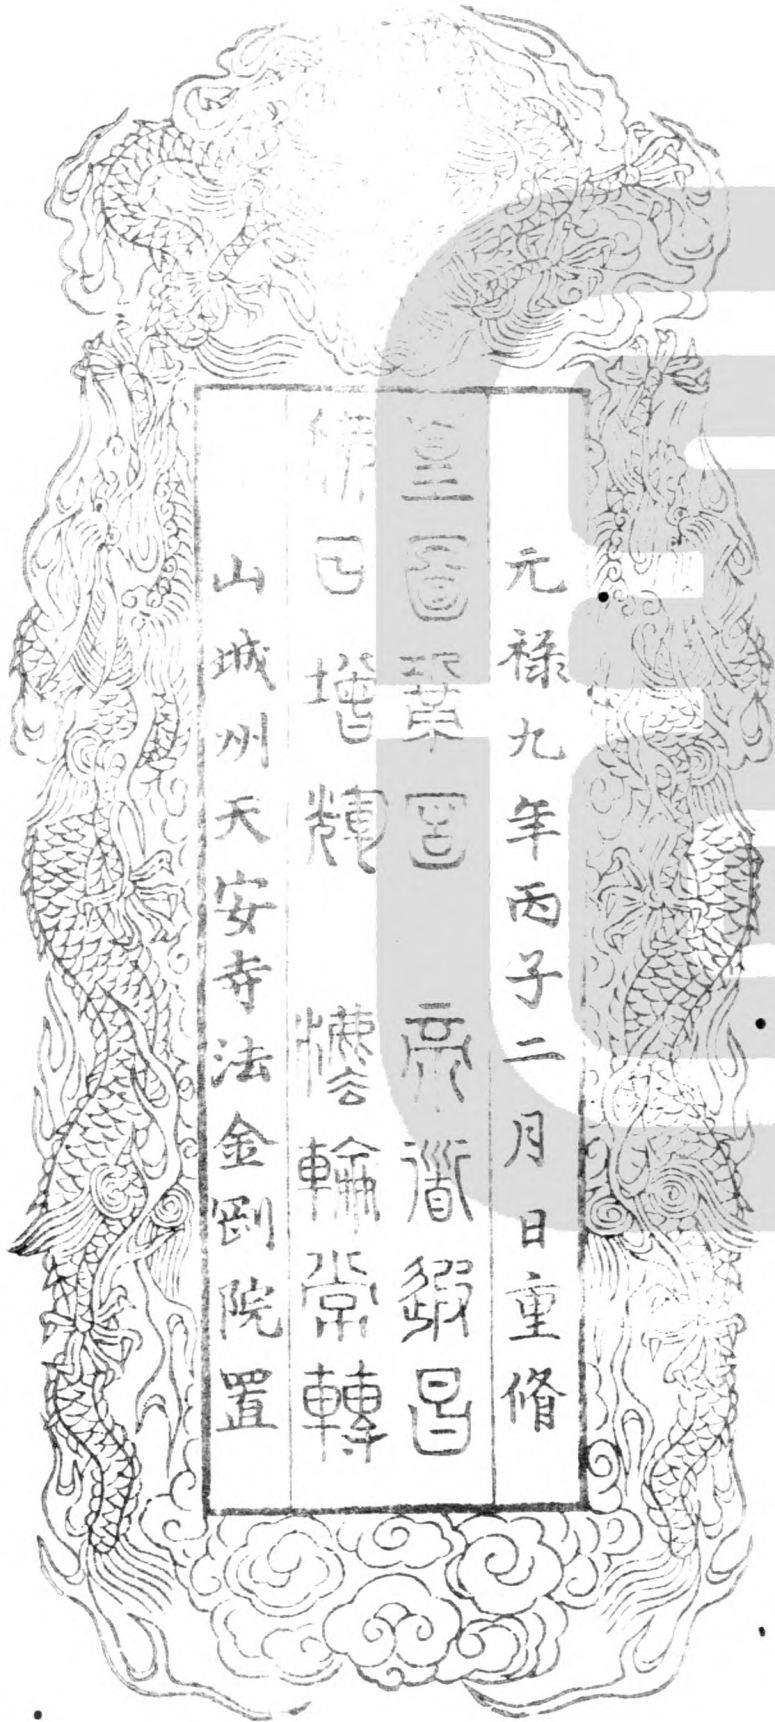 元禄九年丙子二月日重脩
皇圖鞏固帝道遐昌
佛日增輝法輪常轉
山城州天安寺法金剛院置